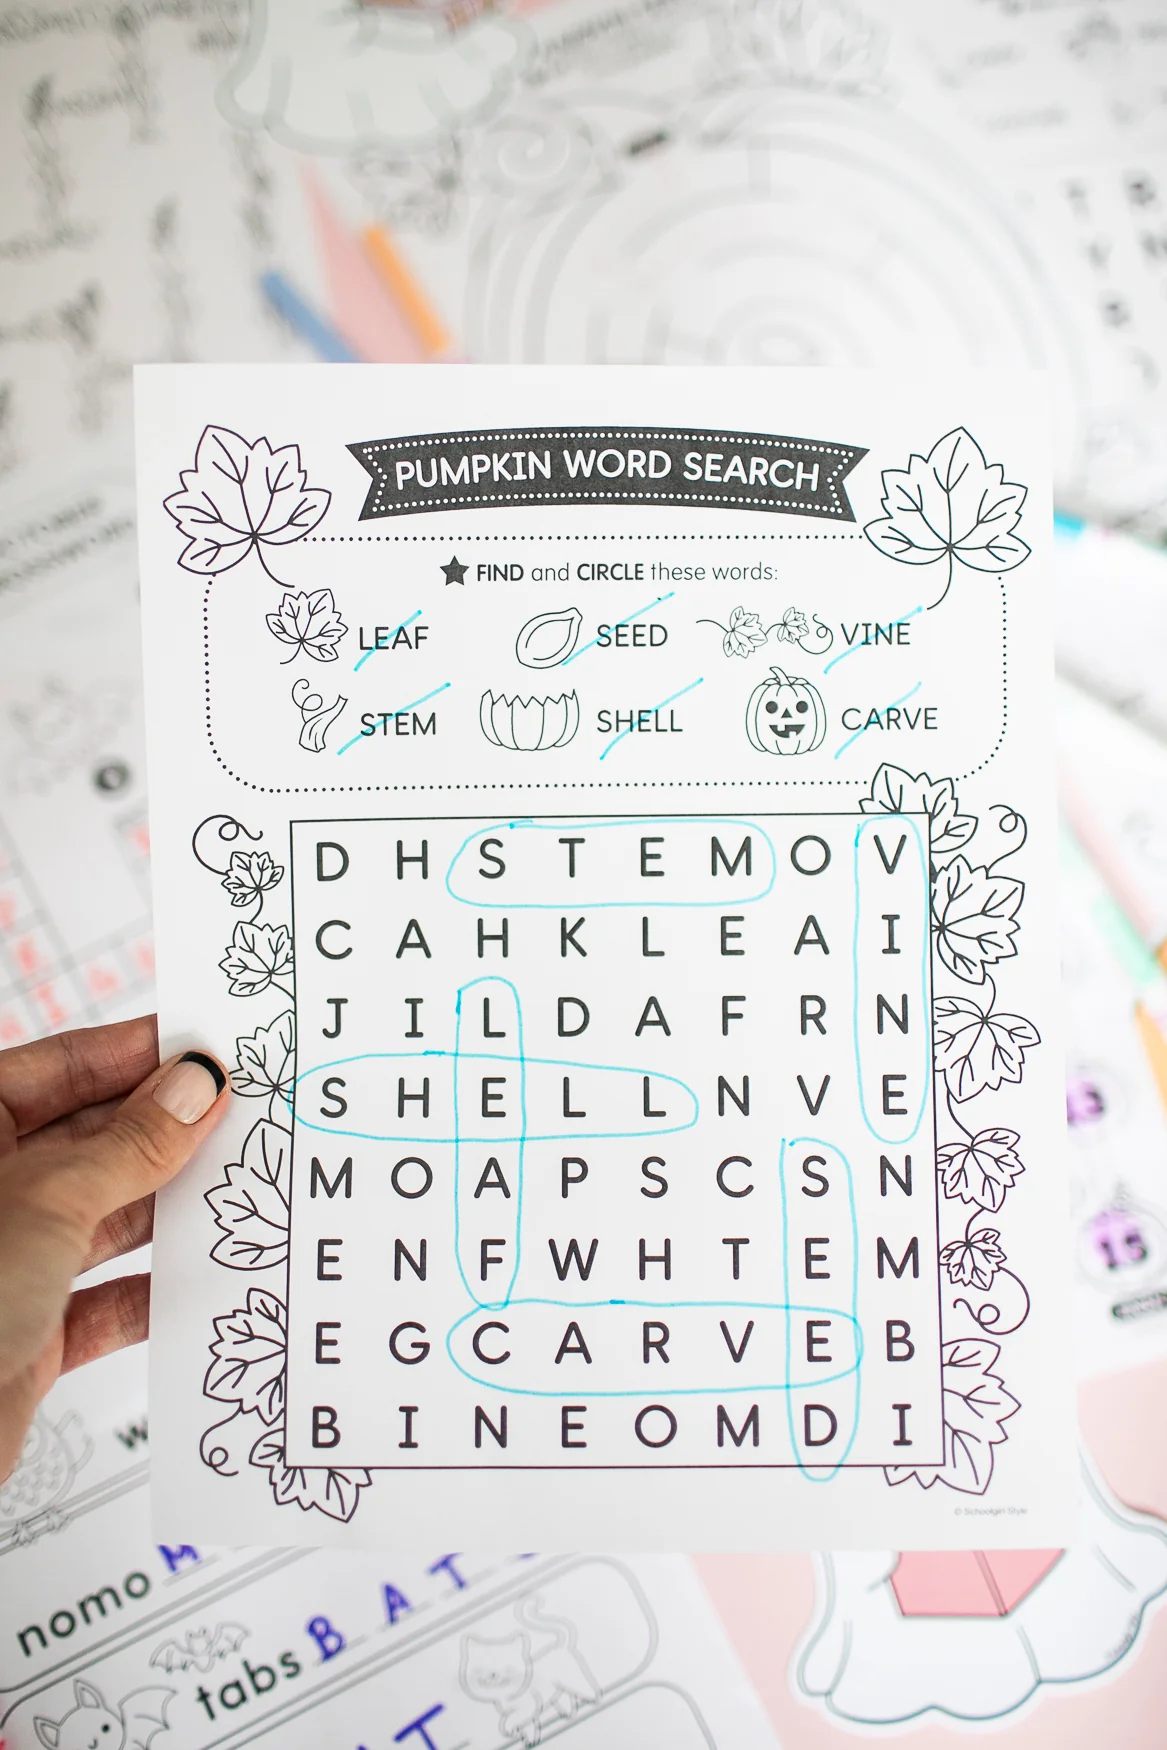 PUMPKIN WORD SEARCH
★ FIND and CIRCLE these words:
LEAF SEED VINE
STEM SHELL CARVE
D H S T E M O V
C A H K L E A I
J I L D A F R N
S H E L L N V E
M O A P S C S N
E N F W H T E M
E G C A R V E B
B I N E O M D I
© Schoolgirl Style
nomo M
tabs B A T
T
15